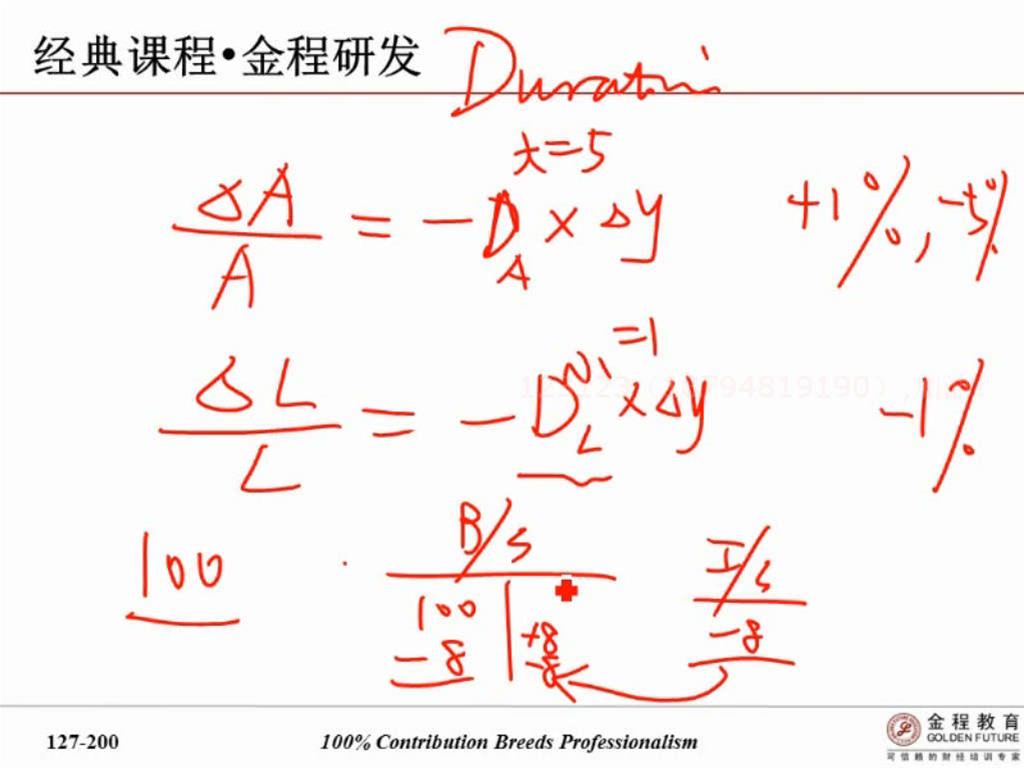 经典课程•金程研发
Duration
t=5
ΔA/A = -D_A × Δy
+1%, -5%
=1
ΔL/L = -D_L × Δy
-1%
100
B/S
100
-8
+8
-8
I/S
-8
127-200
100% Contribution Breeds Professionalism
金程教育
GOLDEN FUTURE
可信赖的财经培训专家